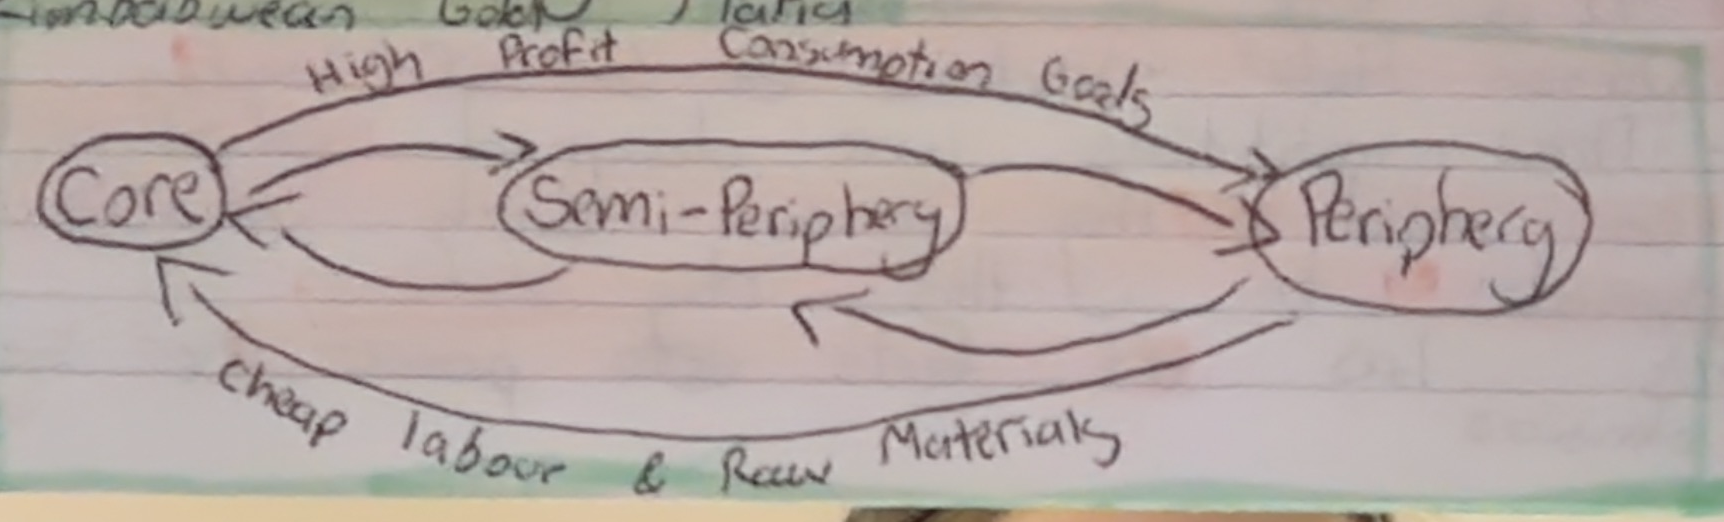 Zimbabwean Gold
High Profit Consumption Goals
Core
Semi-Periphery
Periphery
Cheap labour & Raw Materials